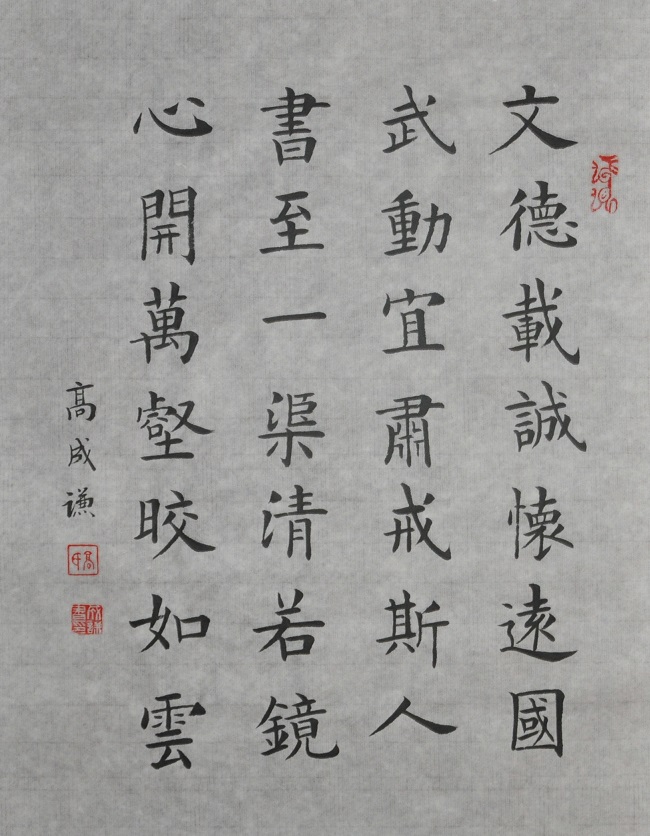 文德載誠懷遠國
武動宜肅戒斯人
書至一渠清若鏡
心開萬壑晈如雲
高成谦
高氏